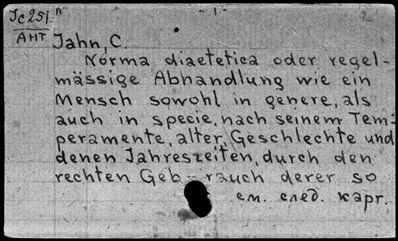 Jc 251 n - 1 -
АНТ
Jahn, C.
Norma diaetetica oder regel-
mässige Abhandlung wie ein
Mensch sowohl in genere, als
auch in specie, nach seinem Tem-
peramente, alter, Geschlechte und
denen Jahreszeiten, durch den
rechten Geb-rauch derer so
см. след. карт.